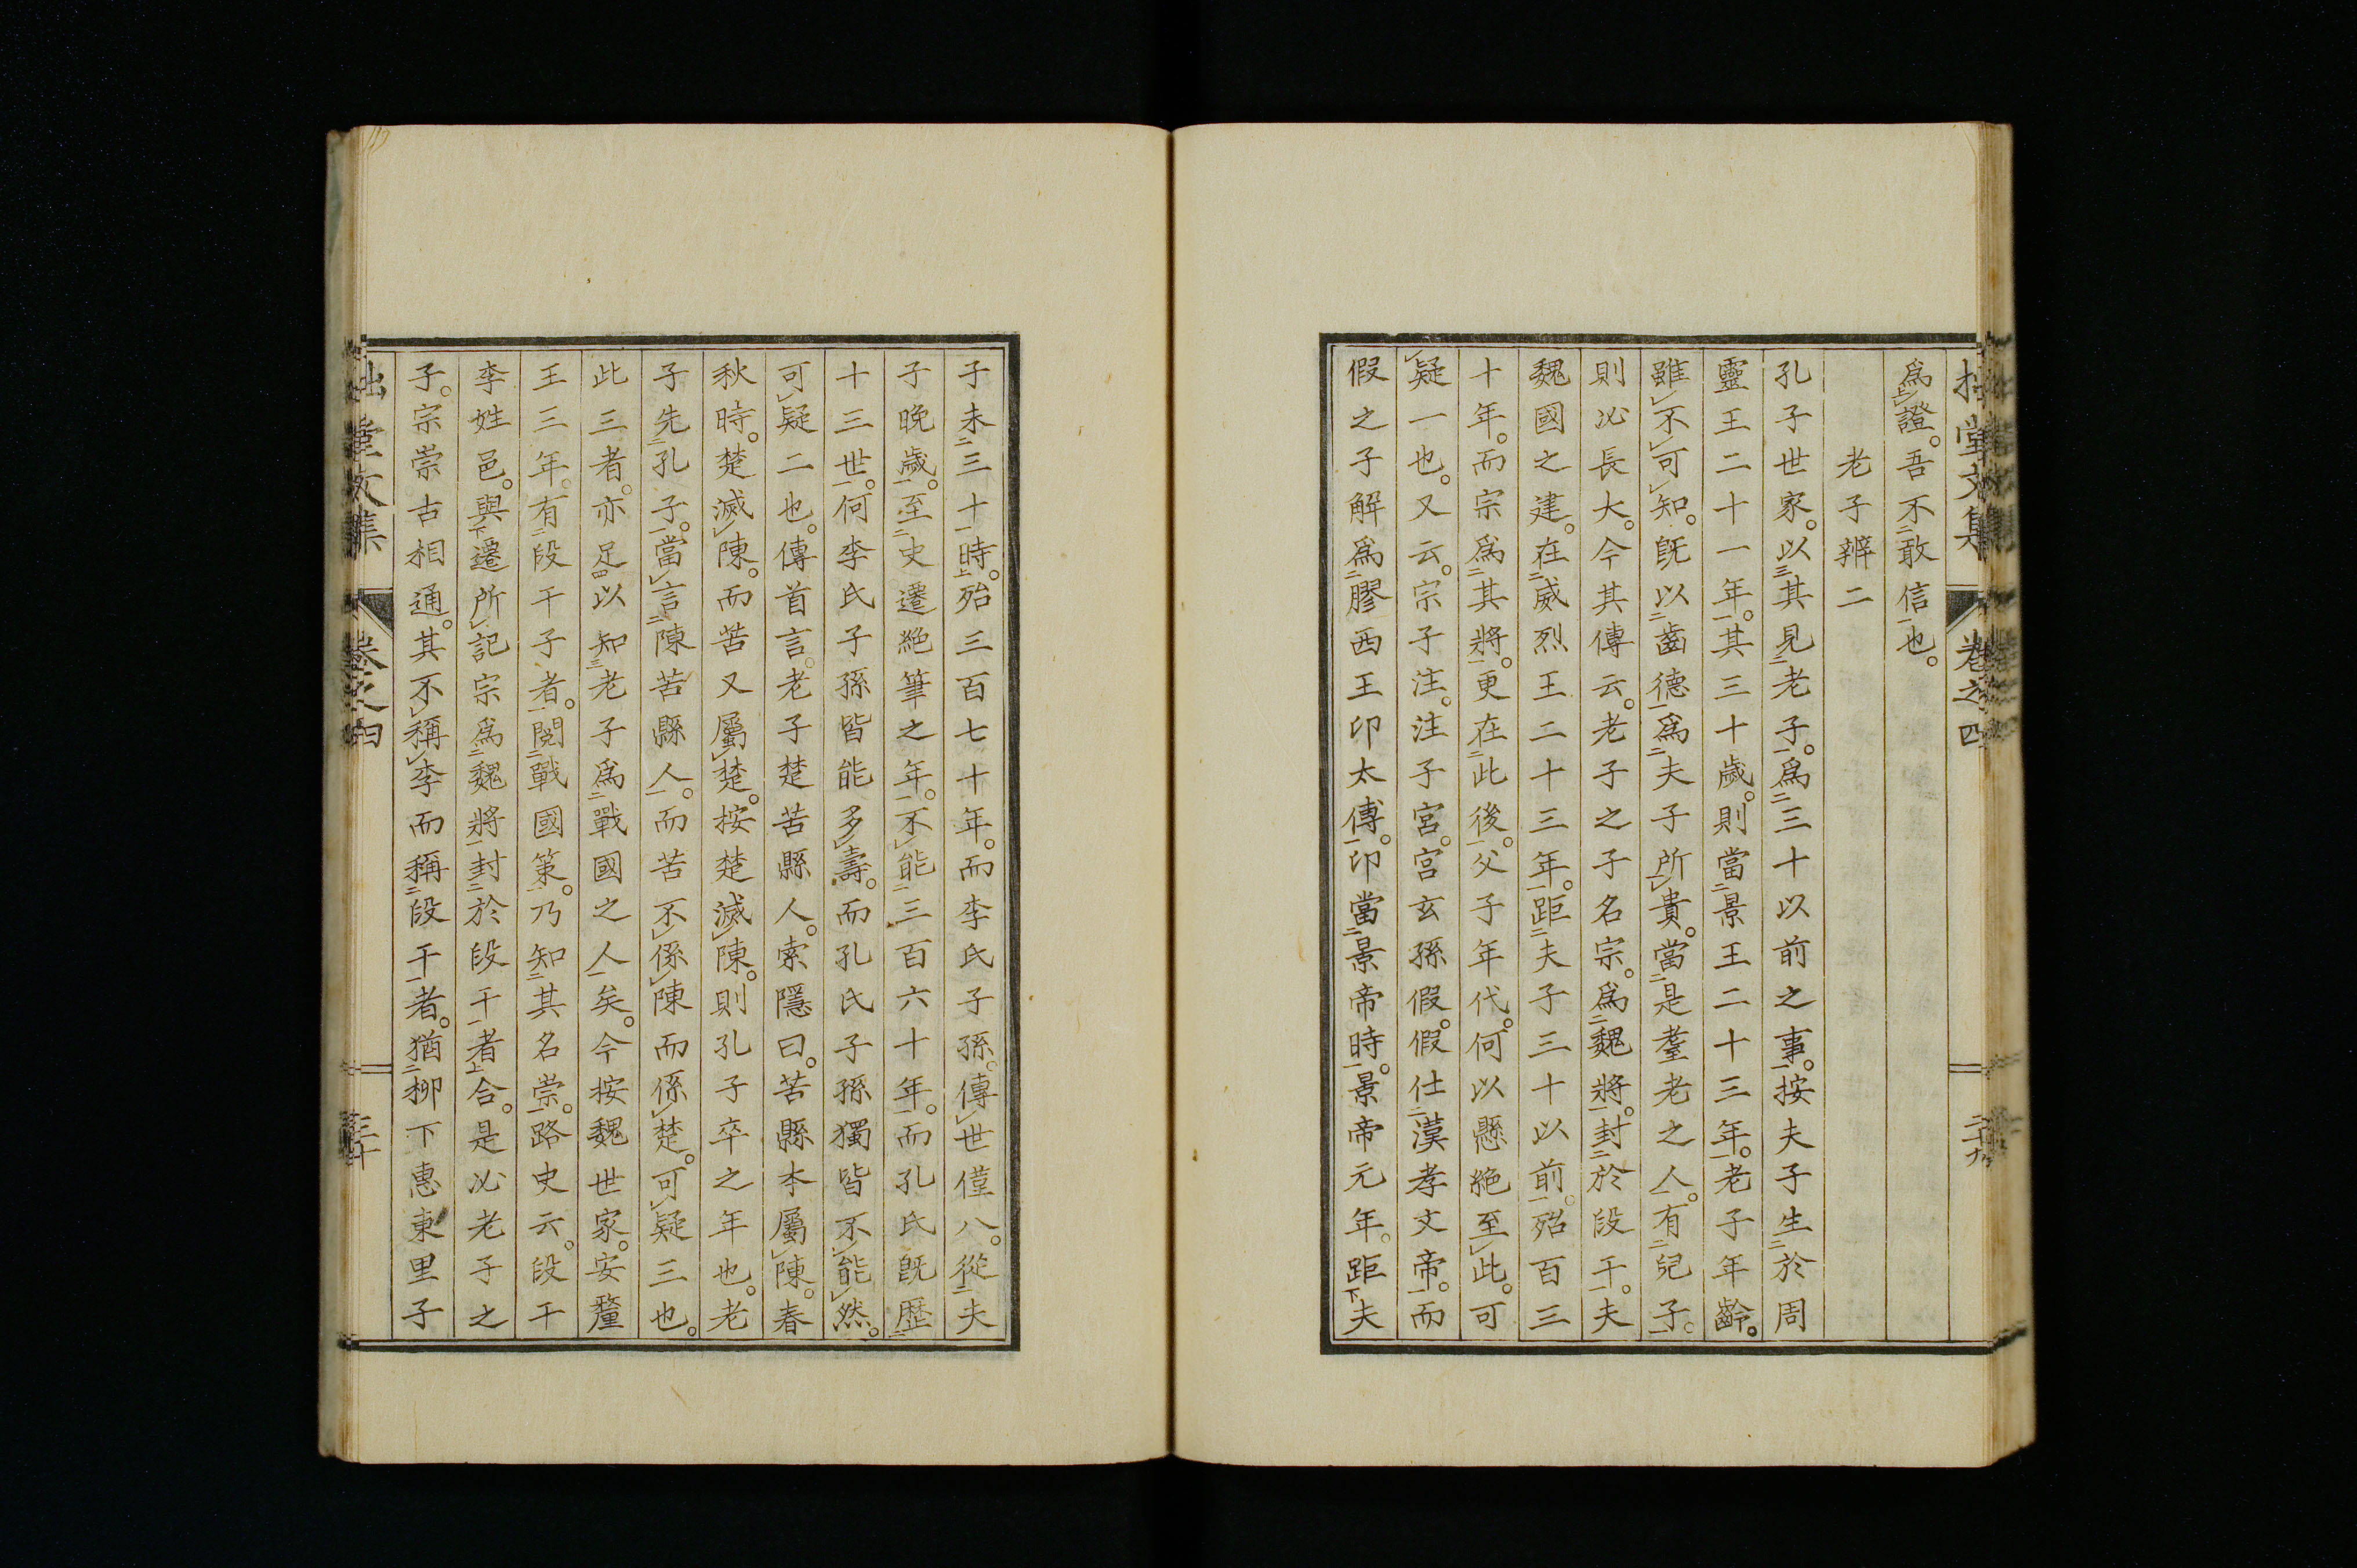 拙堂文集 卷之四 二十九
爲證。吾不敢信也。
老子辨二
孔子世家。以其見老子。爲三十以前之事。按夫子生於周
靈王二十一年。其三十歲。則當景王二十三年。老子年齡。
雖不可知。旣以齒德爲夫子所貴。當是耋老之人。有兒子。
則必長大。今其傳云。老子之子名宗。爲魏將。封於段干。夫
魏國之建。在威烈王二十三年。距夫子三十以前。殆百三
十年。而宗爲其將。更在此後。父子年代。何以懸絶至此。可
疑一也。又云。宗子注。注子宮。宮玄孫假。假仕漢孝文帝。而
假之子解爲膠西王卬太傅。卬當景帝時。景帝元年。距夫
子未三十時。殆三百七十年。而李氏子孫。傳世僅八。從夫
子晚歲。至史遷絶筆之年。不能三百六十年。而孔氏旣歷
十三世。何李氏子孫皆能多壽。而孔氏子孫獨皆不能然。
可疑二也。傳首言。老子楚苦縣人。索隱曰。苦縣本屬陳。春
秋時。楚滅陳。而苦又屬楚。按楚滅陳。則孔子卒之年也。老
子先孔子。當言陳苦縣人。而苦不係陳而係楚。可疑三也。
此三者。亦足以知老子爲戰國之人矣。今按魏世家。安釐
王三年。有段干子者。閱戰國策。乃知其名崇。路史云。段干
李姓邑。與遷所記宗爲魏將封於段干者合。是必老子之
子。宗崇古相通。其不稱李而稱段干者。猶柳下惠東里子
拙堂文集 卷之四 三十